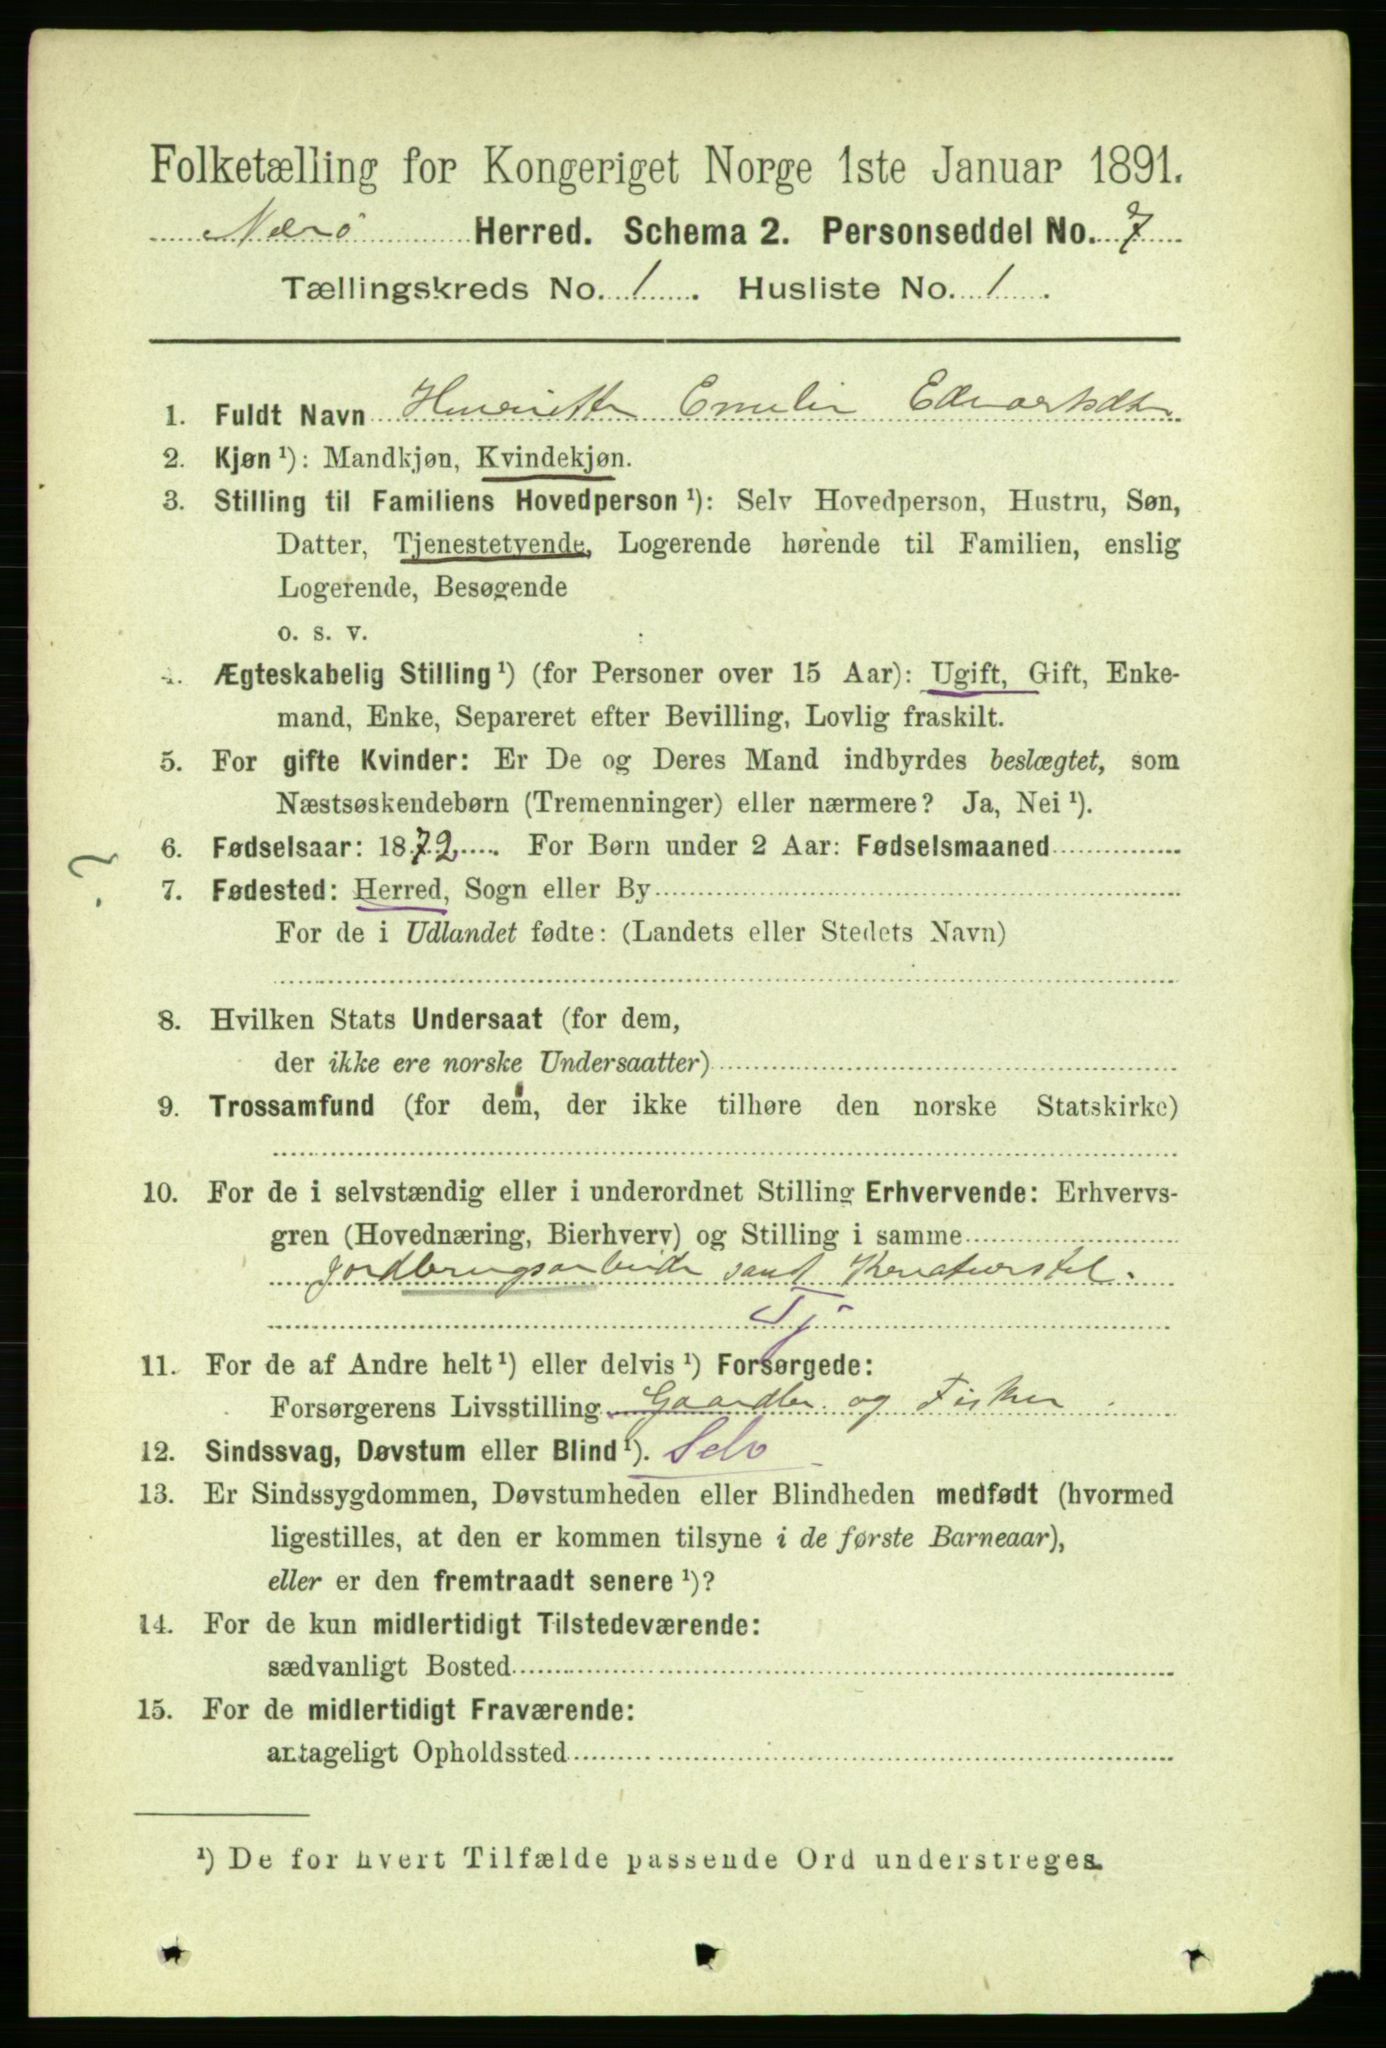 Folketælling for Kongeriget Norge 1ste Januar 1891.
Nærö Herred. Schema 2. Personseddel No. 7
Tællingskreds No. 1. Husliste No. 1.
1. Fuldt Navn Henriette Emelie Edvartsdtr
2. Kjøn ¹): Mandkjøn, Kvindekjøn.
3. Stilling til Familiens Hovedperson ¹): Selv Hovedperson, Hustru, Søn,
Datter, Tjenestetyende, Logerende hørende til Familien, enslig
Logerende, Besøgende
o. s. v.
4. Ægteskabelig Stilling ¹) (for Personer over 15 Aar): Ugift, Gift, Enke-
mand, Enke, Separeret efter Bevilling, Lovlig fraskilt.
5. For gifte Kvinder: Er De og Deres Mand indbyrdes beslægtet, som
Næstsøskendebørn (Tremenninger) eller nærmere? Ja, Nei ¹).
6. Fødselsaar: 1872. For Børn under 2 Aar: Fødselsmaaned
?
7. Fødested: Herred, Sogn eller By
For de i Udlandet fødte: (Landets eller Stedets Navn)
8. Hvilken Stats Undersaat (for dem,
der ikke ere norske Undersaatter)
9. Trossamfund (for dem, der ikke tilhøre den norske Statskirke)
10. For de i selvstændig eller i underordnet Stilling Erhvervende: Erhvervs-
gren (Hovednæring, Bierhverv) og Stilling i samme
Jordbrugsarbeide samt Kreaturstel.
Tj
11. For de af Andre helt ¹) eller delvis ¹) Forsørgede:
Forsørgerens Livsstilling Gaardbr. og Fisker
12. Sindssvag, Døvstum eller Blind ¹). Selv
13. Er Sindssygdommen, Døvstumheden eller Blindheden medfødt (hvormed
ligestilles, at den er kommen tilsyne i de første Barneaar),
eller er den fremtraadt senere ¹)?
14. For de kun midlertidigt Tilstedeværende:
sædvanligt Bosted
15. For de midlertidigt Fraværende:
antageligt Opholdssted
¹) De for hvert Tilfælde passende Ord understreges.